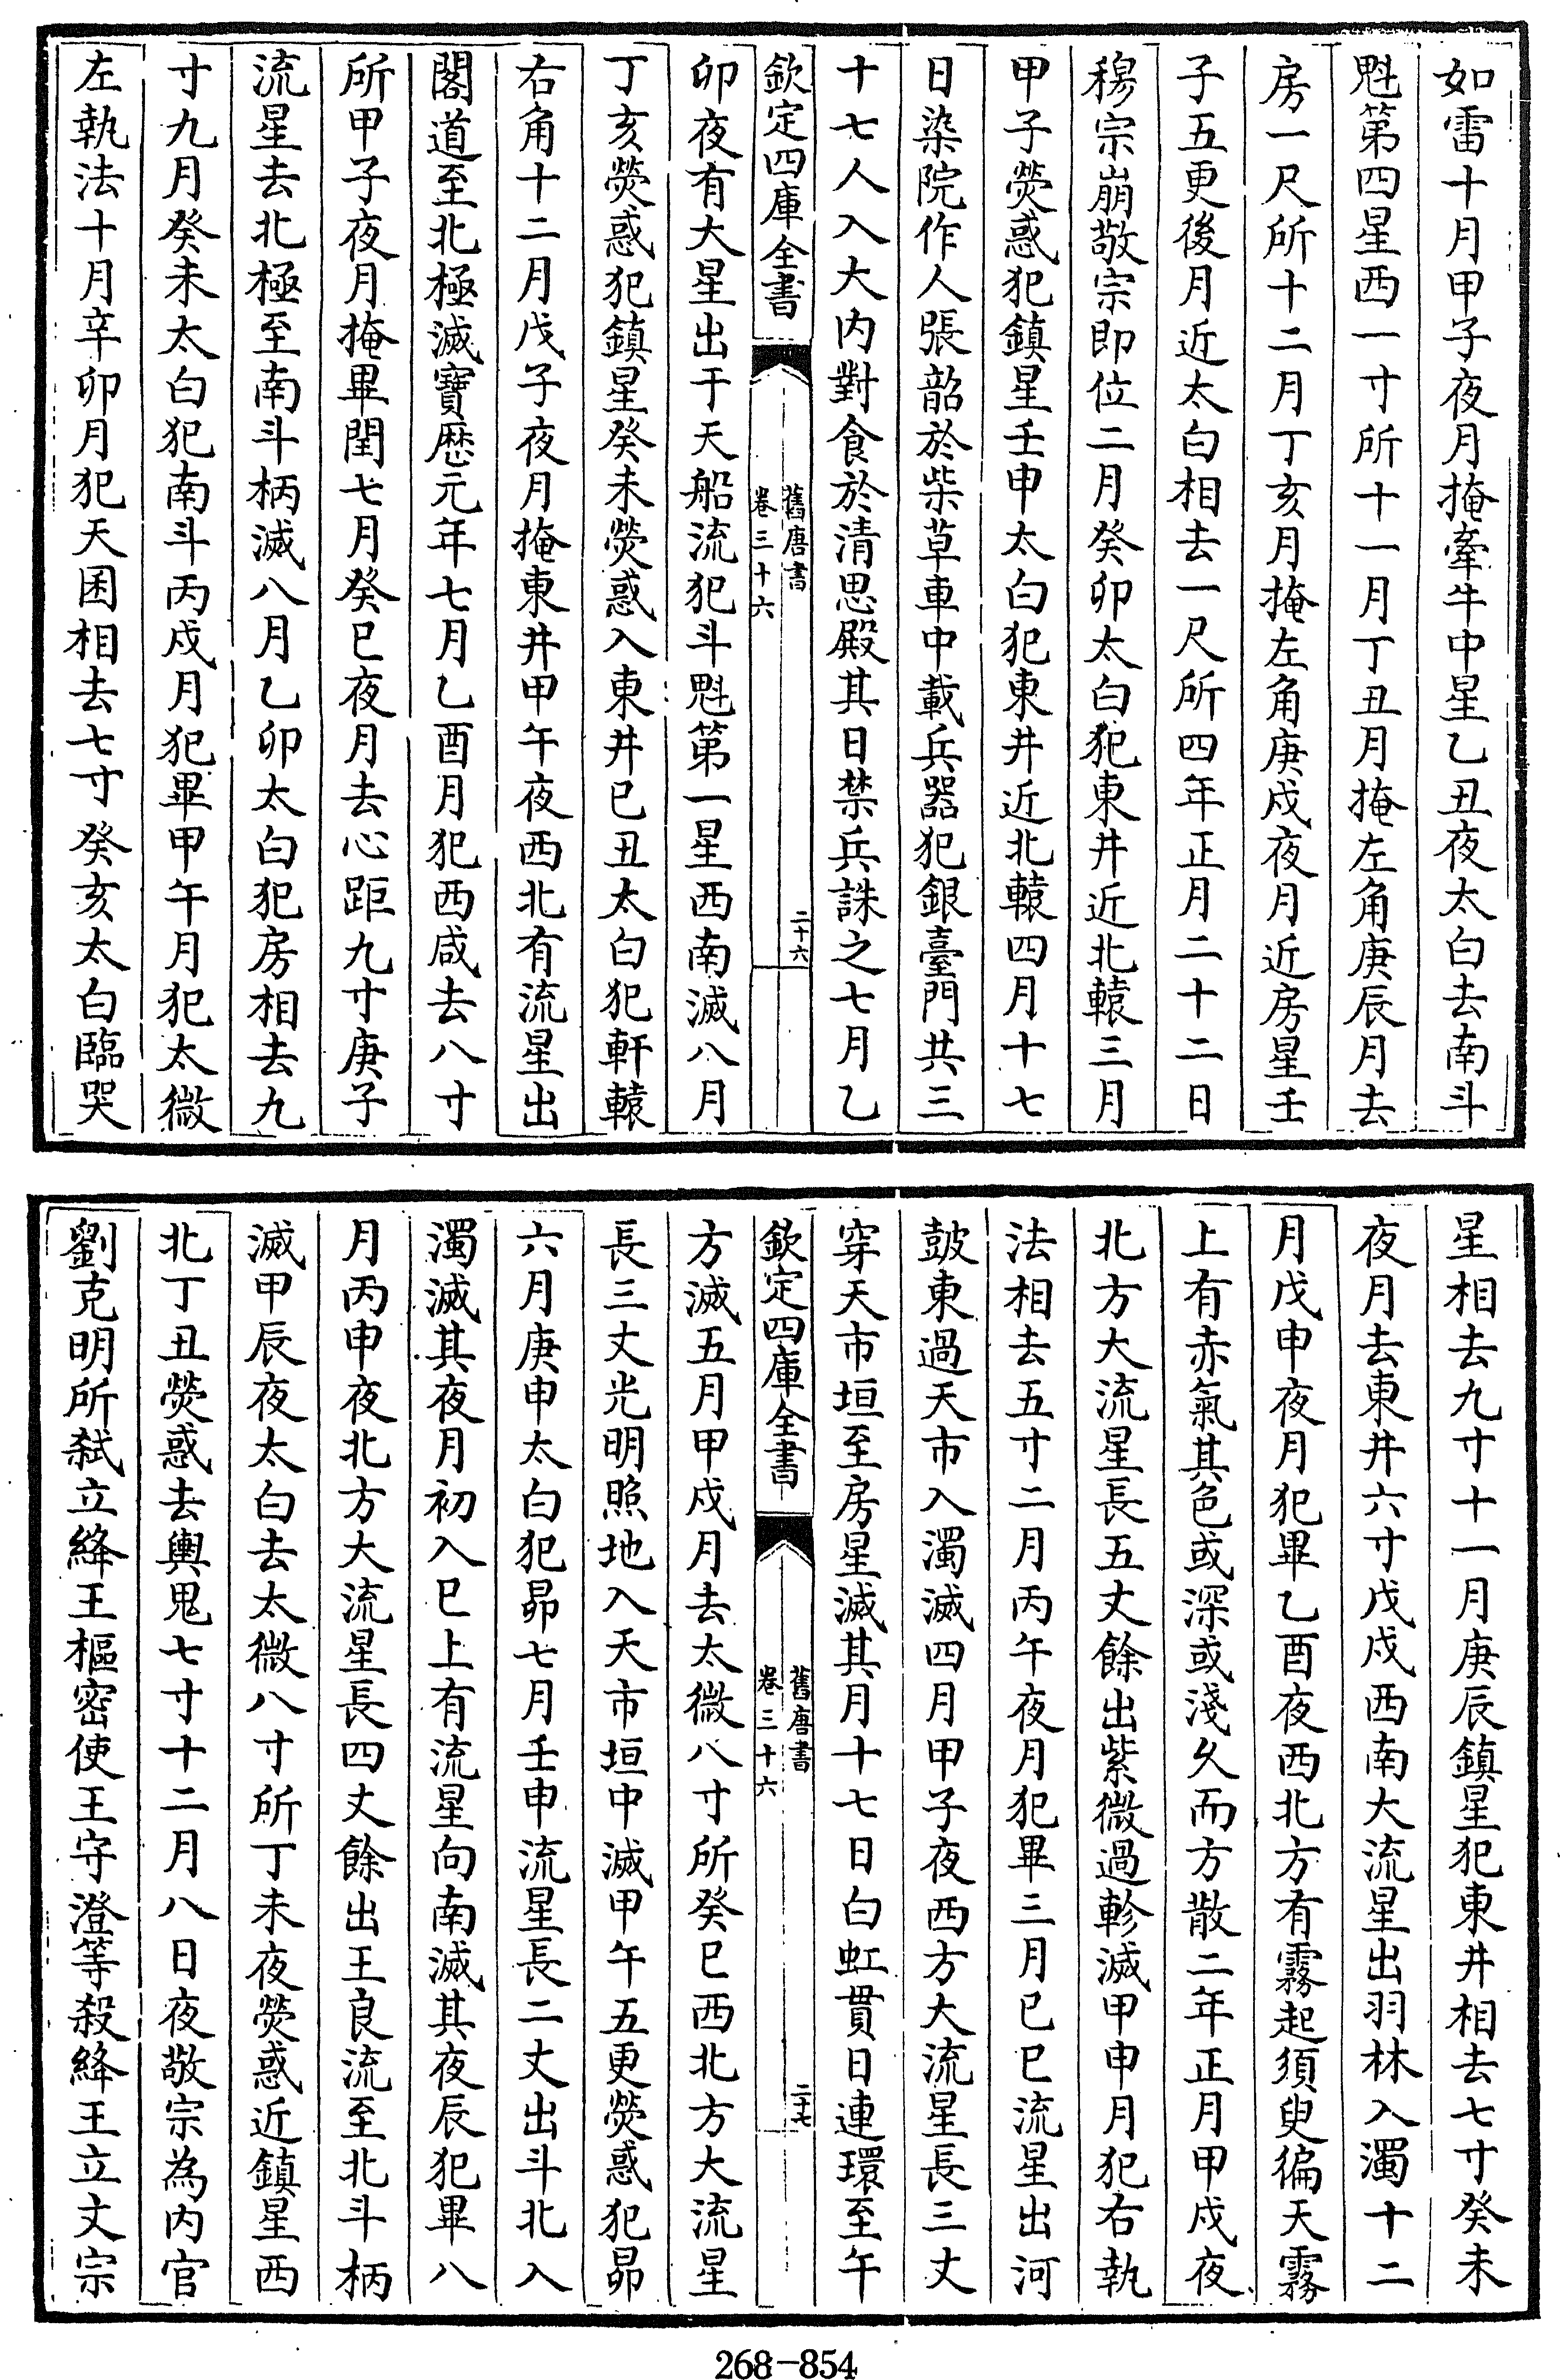 如雷十月甲子夜月掩牽牛中星乙丑夜太白去南斗
魁第四星西一寸所十一月丁丑月掩左角庚辰月去
房一尺所十二月丁亥月掩左角庚戍夜月近房星壬
子五更後月近太白相去一尺所四年正月二十二日
穆宗崩敬宗即位二月癸卯太白犯東井近北轅三月
甲子熒惑犯鎮星壬申太白犯東井近北轅四月十七
日染院作人張韶於柴草車中載兵器犯銀臺門共三
十七人入大内對食於清思殿其日禁兵誅之七月乙
欽定四庫全書
舊唐書
卷三十六
二十六
卯夜有大星出于天船流犯斗魁第一星西南滅八月
丁亥熒惑犯鎮星癸未熒惑入東井已丑太白犯軒轅
右角十二月戊子夜月掩東井甲午夜西北有流星出
閣道至北極滅寶厯元年七月乙酉月犯西咸去八寸
所甲子夜月掩畢閏七月癸巳夜月去心距九寸庚子
流星去北極至南斗柄滅八月乙卯太白犯房相去九
寸九月癸未太白犯南斗丙戍月犯畢甲午月犯太微
左執法十月辛卯月犯天囷相去七寸癸亥太白臨哭
星相去九寸十一月庚辰鎮星犯東井相去七寸癸未
夜月去東井六寸戊戍西南大流星出羽林入濁十二
月戊申夜月犯畢乙酉夜西北方有霧起須臾徧天霧
上有赤氣其色或深或淺久而方散二年正月甲戍夜
北方大流星長五丈餘出紫微過軫滅甲申月犯右執
法相去五寸二月丙午夜月犯畢三月已巳流星出河
鼓東過天市入濁滅四月甲子夜西方大流星長三丈
穿天市垣至房星滅其月十七日白虹貫日連環至午
欽定四庫全書
舊唐書
卷三十六
二十七
方滅五月甲戍月去太微八寸所癸巳西北方大流星
長三丈光明照地入天市垣中滅甲午五更熒惑犯昴
六月庚申太白犯昴七月壬申流星長二丈出斗北入
濁滅其夜月初入巳上有流星向南滅其夜辰犯畢八
月丙申夜北方大流星長四丈餘出王良流至北斗柄
滅甲辰夜太白去太微八寸所丁未夜熒惑近鎮星西
北丁丑熒惑去輿鬼七寸十二月八日夜敬宗為内官
劉克明所弑立絳王樞密使王守澄等殺絳王立文宗
268-854